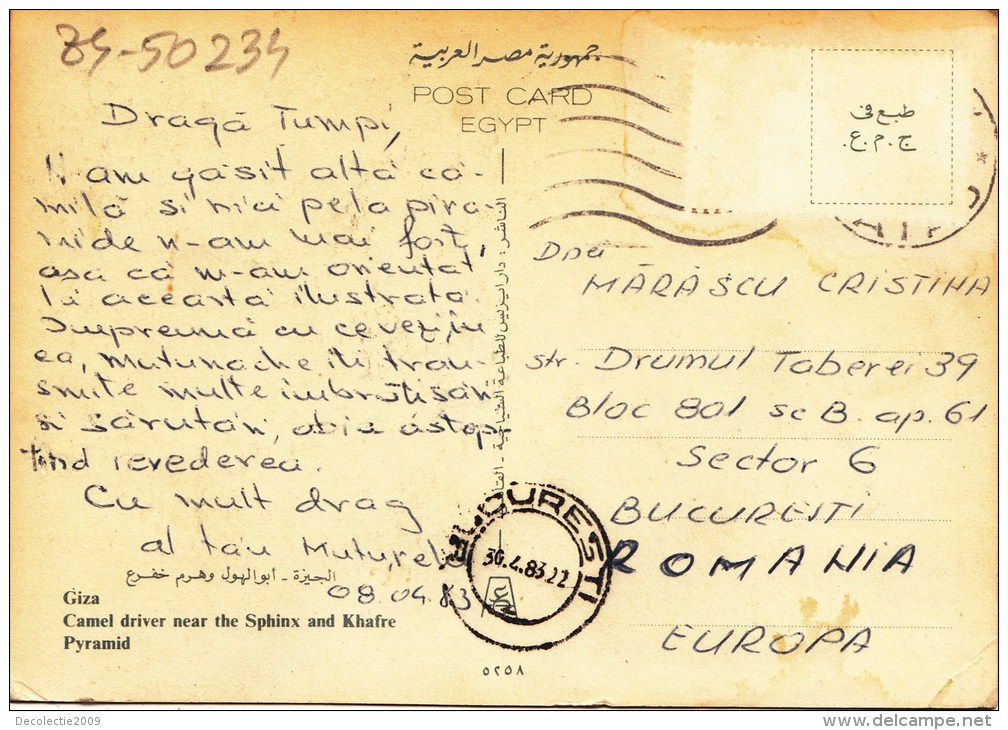 84-50234
جمهورية مصر العربية
POST CARD
EGYPT
طبع فى
ج.م.ع.
Dragă Tumpi,
N-am găsit altă că-
milă și nici pe la pira-
mide n-am mai fost,
așa că m-am orientat
la această ilustrată.
Împreună cu ce vezi în
ea, Mutunache îți tran-
smite multe îmbrățișări
și sărutări, abia aștep-
tînd revederea.
Cu mult drag
al tău Muturel
08.04.83
Dnei
MĂRĂȘCU CRISTINA
str. Drumul Taberei 39
Bloc 801 sc B. ap. 61
Sector 6
BUCUREȘTI
ROMANIA
EUROPA
BUCUREȘTI
30.4.83 22
الجيزة - أبوالهول وهرم خفرع
Giza
Camel driver near the Sphinx and Khafre
Pyramid
٥٢٥٨
Decolectie2009
www.delcampe.net